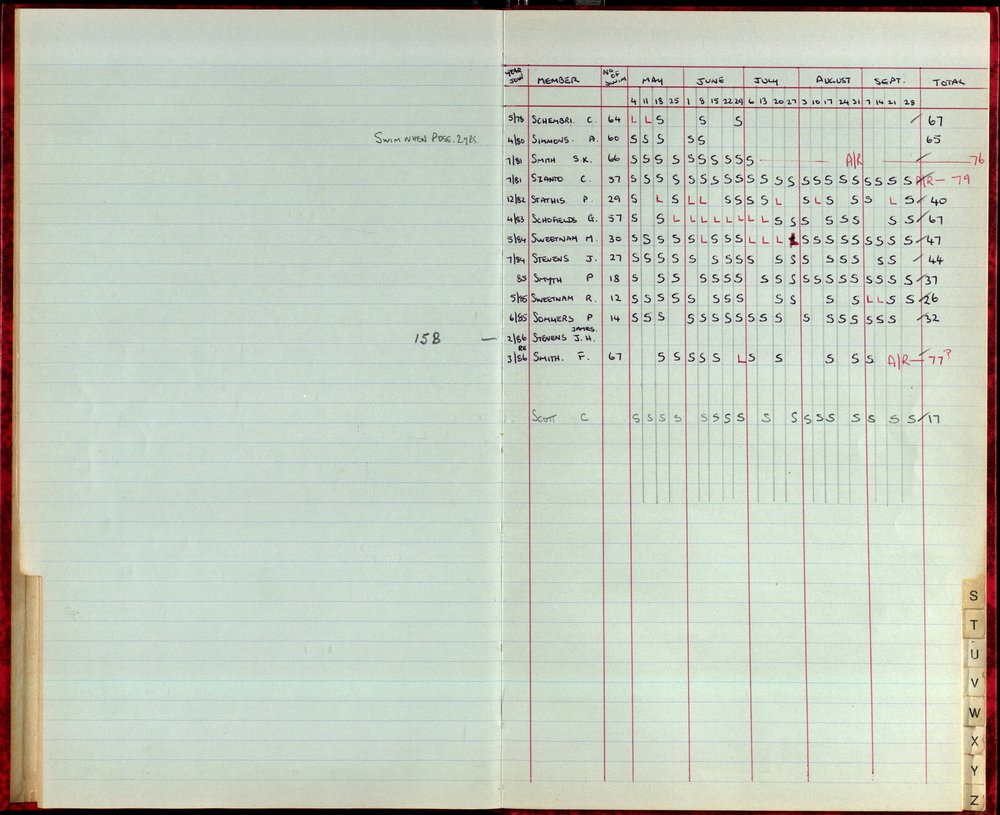 YEAR JOIN MEMBER NO OF SWIM MAY JUNE JULY AUGUST SEPT. TOTAL
4 11 18 25 1 8 15 22 29 6 13 20 27 3 10 17 24 31 7 14 21 28
5/78 SCHEMBRI. C. 64 L L S S S 67
SWIM WHEN POSS. 2 YRS. 4/80 SIMMONS. A. 60 S S S S S 65
7/81 SMITH S.K. 66 S S S S S S S S S S A/R 76
7/81 SZANTO C. 57 S S S S S S S S S S S S S S S S S S S S S S A/R - 79
12/82 STATHIS. P. 29 S L S L L S S S S L S L S S S L S 40
4/83 SCHOFIELDS G. 57 S S L L L L L L L L S S S S S S S 67
5/84 SWEETNAM M. 30 S S S S S L S S S L L L L S S S S S S S S S 47
7/84 STEVENS J. 27 S S S S S S S S S S S S S S S S S 44
85 SMYTH P 18 S S S S S S S S S S S S S S S S S S S 37
5/85 SWEETNAM R. 12 S S S S S S S S S S S S L L S S 26
6/85 SOMMERS P 14 S S S S S S S S S S S S S S S S S S S 32
15B — 2/86 STEVENS JAMES. J.H.
RE 3/86 SMITH. F. 67 S S S S S L S S S S S A/R - 77?
SCOTT C S S S S S S S S S S S S S S S S S 17
S
T
U
V
W
X
Y
Z